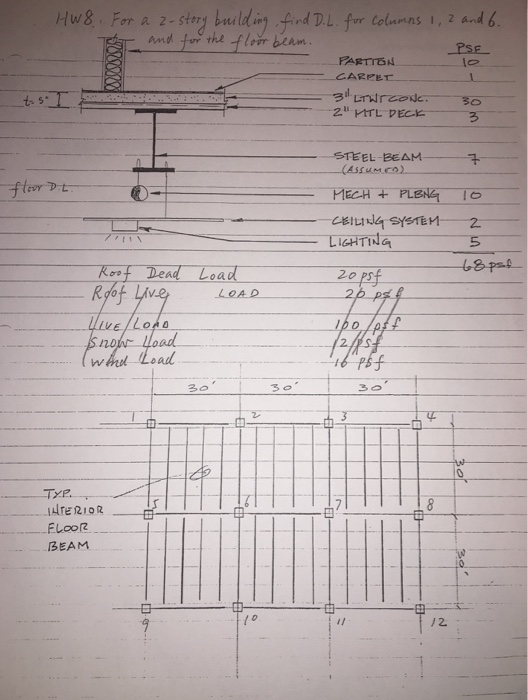 HW8. For a 2-story building, find D.L. for Columns 1, 2 and 6.
and for the floor beam.
PSF
PARTITON 10
CARPET 1
t=5"
3" LTWT CONC. 30
2" MTL DECK 3
STEEL BEAM 7
(ASSUMED)
floor D.L.
MECH + PLBNG 10
CEILING SYSTEM 2
LIGHTING 5
68 psf
Roof Dead Load 20 psf
Roof Live LOAD 20 psf
LIVE LOAD 100 psf
Snow Load 12 psf
Wind Load 16 psf
30' 30' 30'
1 2 3 4
30'
TYP.
INTERIOR
FLOOR
BEAM
5 6 7 8
30'
9 10 11 12